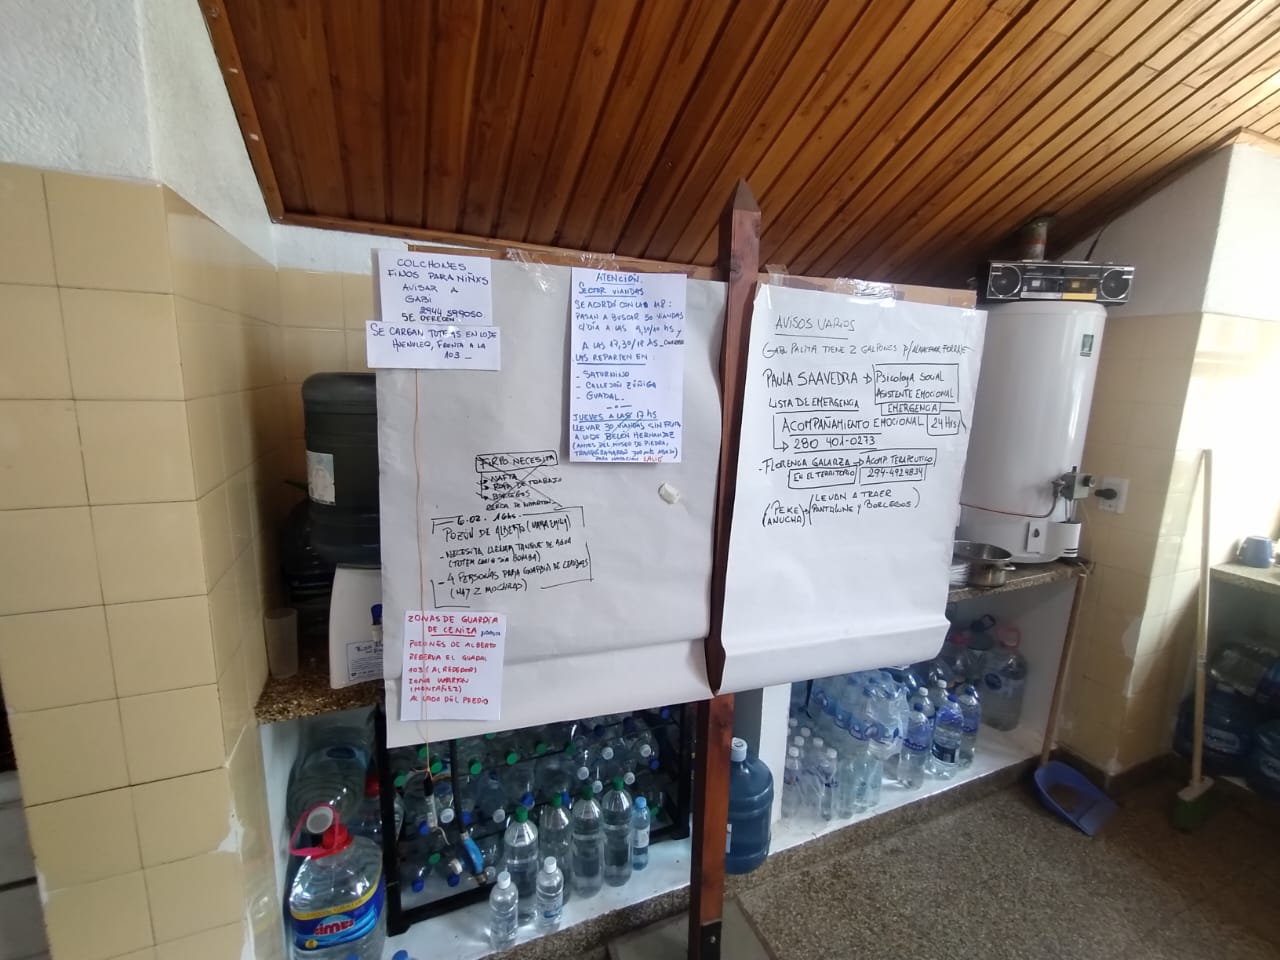 COLCHONES
FINOS PARA NIÑXS
AVISAR A
GABI
2944 599050
SE OFRECEN
SE CARGAN TOTEMS EN LO DE
HUENULEO, FRENTE A LA
103_
ATENCIÓN
SECTOR VIANDAS
SE ACORDÓ CON LA M8:
PASAN A BUSCAR 50 VIANDAS
C/DIA A LAS 9,30/10 HS Y
A LAS 17,30/18 HS_
LAS REPARTEN EN:
- SATURNINO
- CALLEJÓN ZÚÑIGA
- GUADAL_
JUEVES A LAS 17 HS
LLEVAR 30 VIANDAS SIN FRUTA
A LO DE BELÉN HERNANDEZ
(ANTES DEL MUSEO DE PIEDRA,
NECESITA
NAFTA
ROPA DE TRABAJO
BORCEGOS
POZÓN DE ALBERTO
- NECESITA LLENAR TANQUE DE AGUA
- 4 PERSONAS PARA GUARDIA DE CENIZAS
(HAY 2 MOCHILAS)
ZONAS DE GUARDIA
DE CENIZA
POZONES DE ALBERTO
RESERVA EL GUADAL
103 (ALREDEDOR)
ZONA WARTON
(MONTAÑEZ)
AL LADO DEL PREDIO
AVISOS VARIOS
GABI PALMA TIENE 2 GALPONES P/ALMACENAR FORRAJE
PAULA SAAVEDRA → Psicologa Social
ASISTENTE EMOCIONAL
LISTA DE EMERGENCIA EMERGENCIA
ACOMPAÑAMIENTO EMOCIONAL 24Hs
280 401-0273
- FLORENCIA GALARZA → ACOMP. TERAPEUTICO
EN EL TERRITORIO 294-4924834
(PEKE ANUCHA) → (LLEVAN A TRAER
PANTALONES Y BORCEGOS)